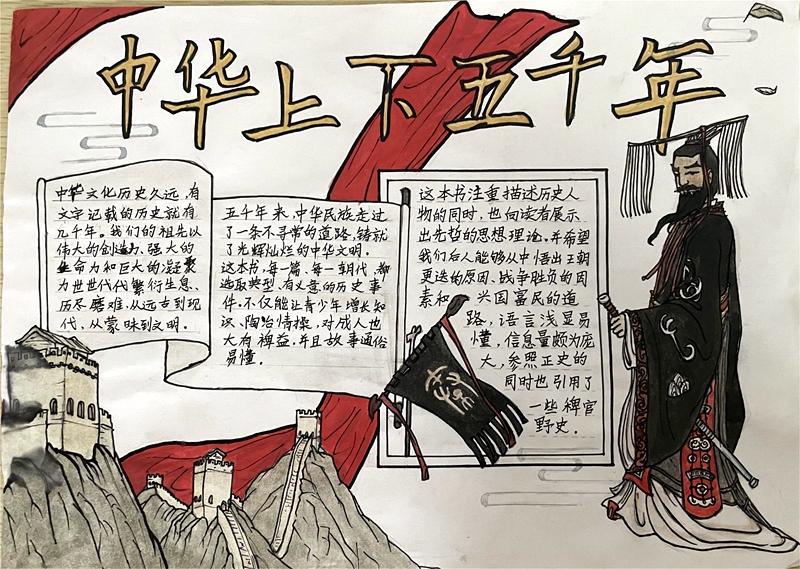 中华上下五千年
中华文化历史久远，有
文字记载的历史就有
几千年。我们的祖先以
伟大的创造力、强大的
生命力和巨大的凝聚
为世世代代繁衍生息、
历尽磨难，从远古到现
代，从蒙昧到文明。
五千年来，中华民族走过
了一条不寻常的道路，铸就
了光辉灿烂的中华文明。
这本书，每一篇、每一朝代，都
选取典型、有义意的历史事
件。不仅能让青少年增长知
识、陶冶情操，对成人也
大有裨益，并且故事通俗
易懂。
这本书注重描述历史人
物的同时，也向读者展示
出先哲的思想理论。并希望
我们后人能够从中悟出王朝
更迭的原因、战争胜负的因
素和兴国富民的道
路，语言浅显易
懂，信息量颇为庞
大，参照正史的
同时也引用了
一些稗官
野史。